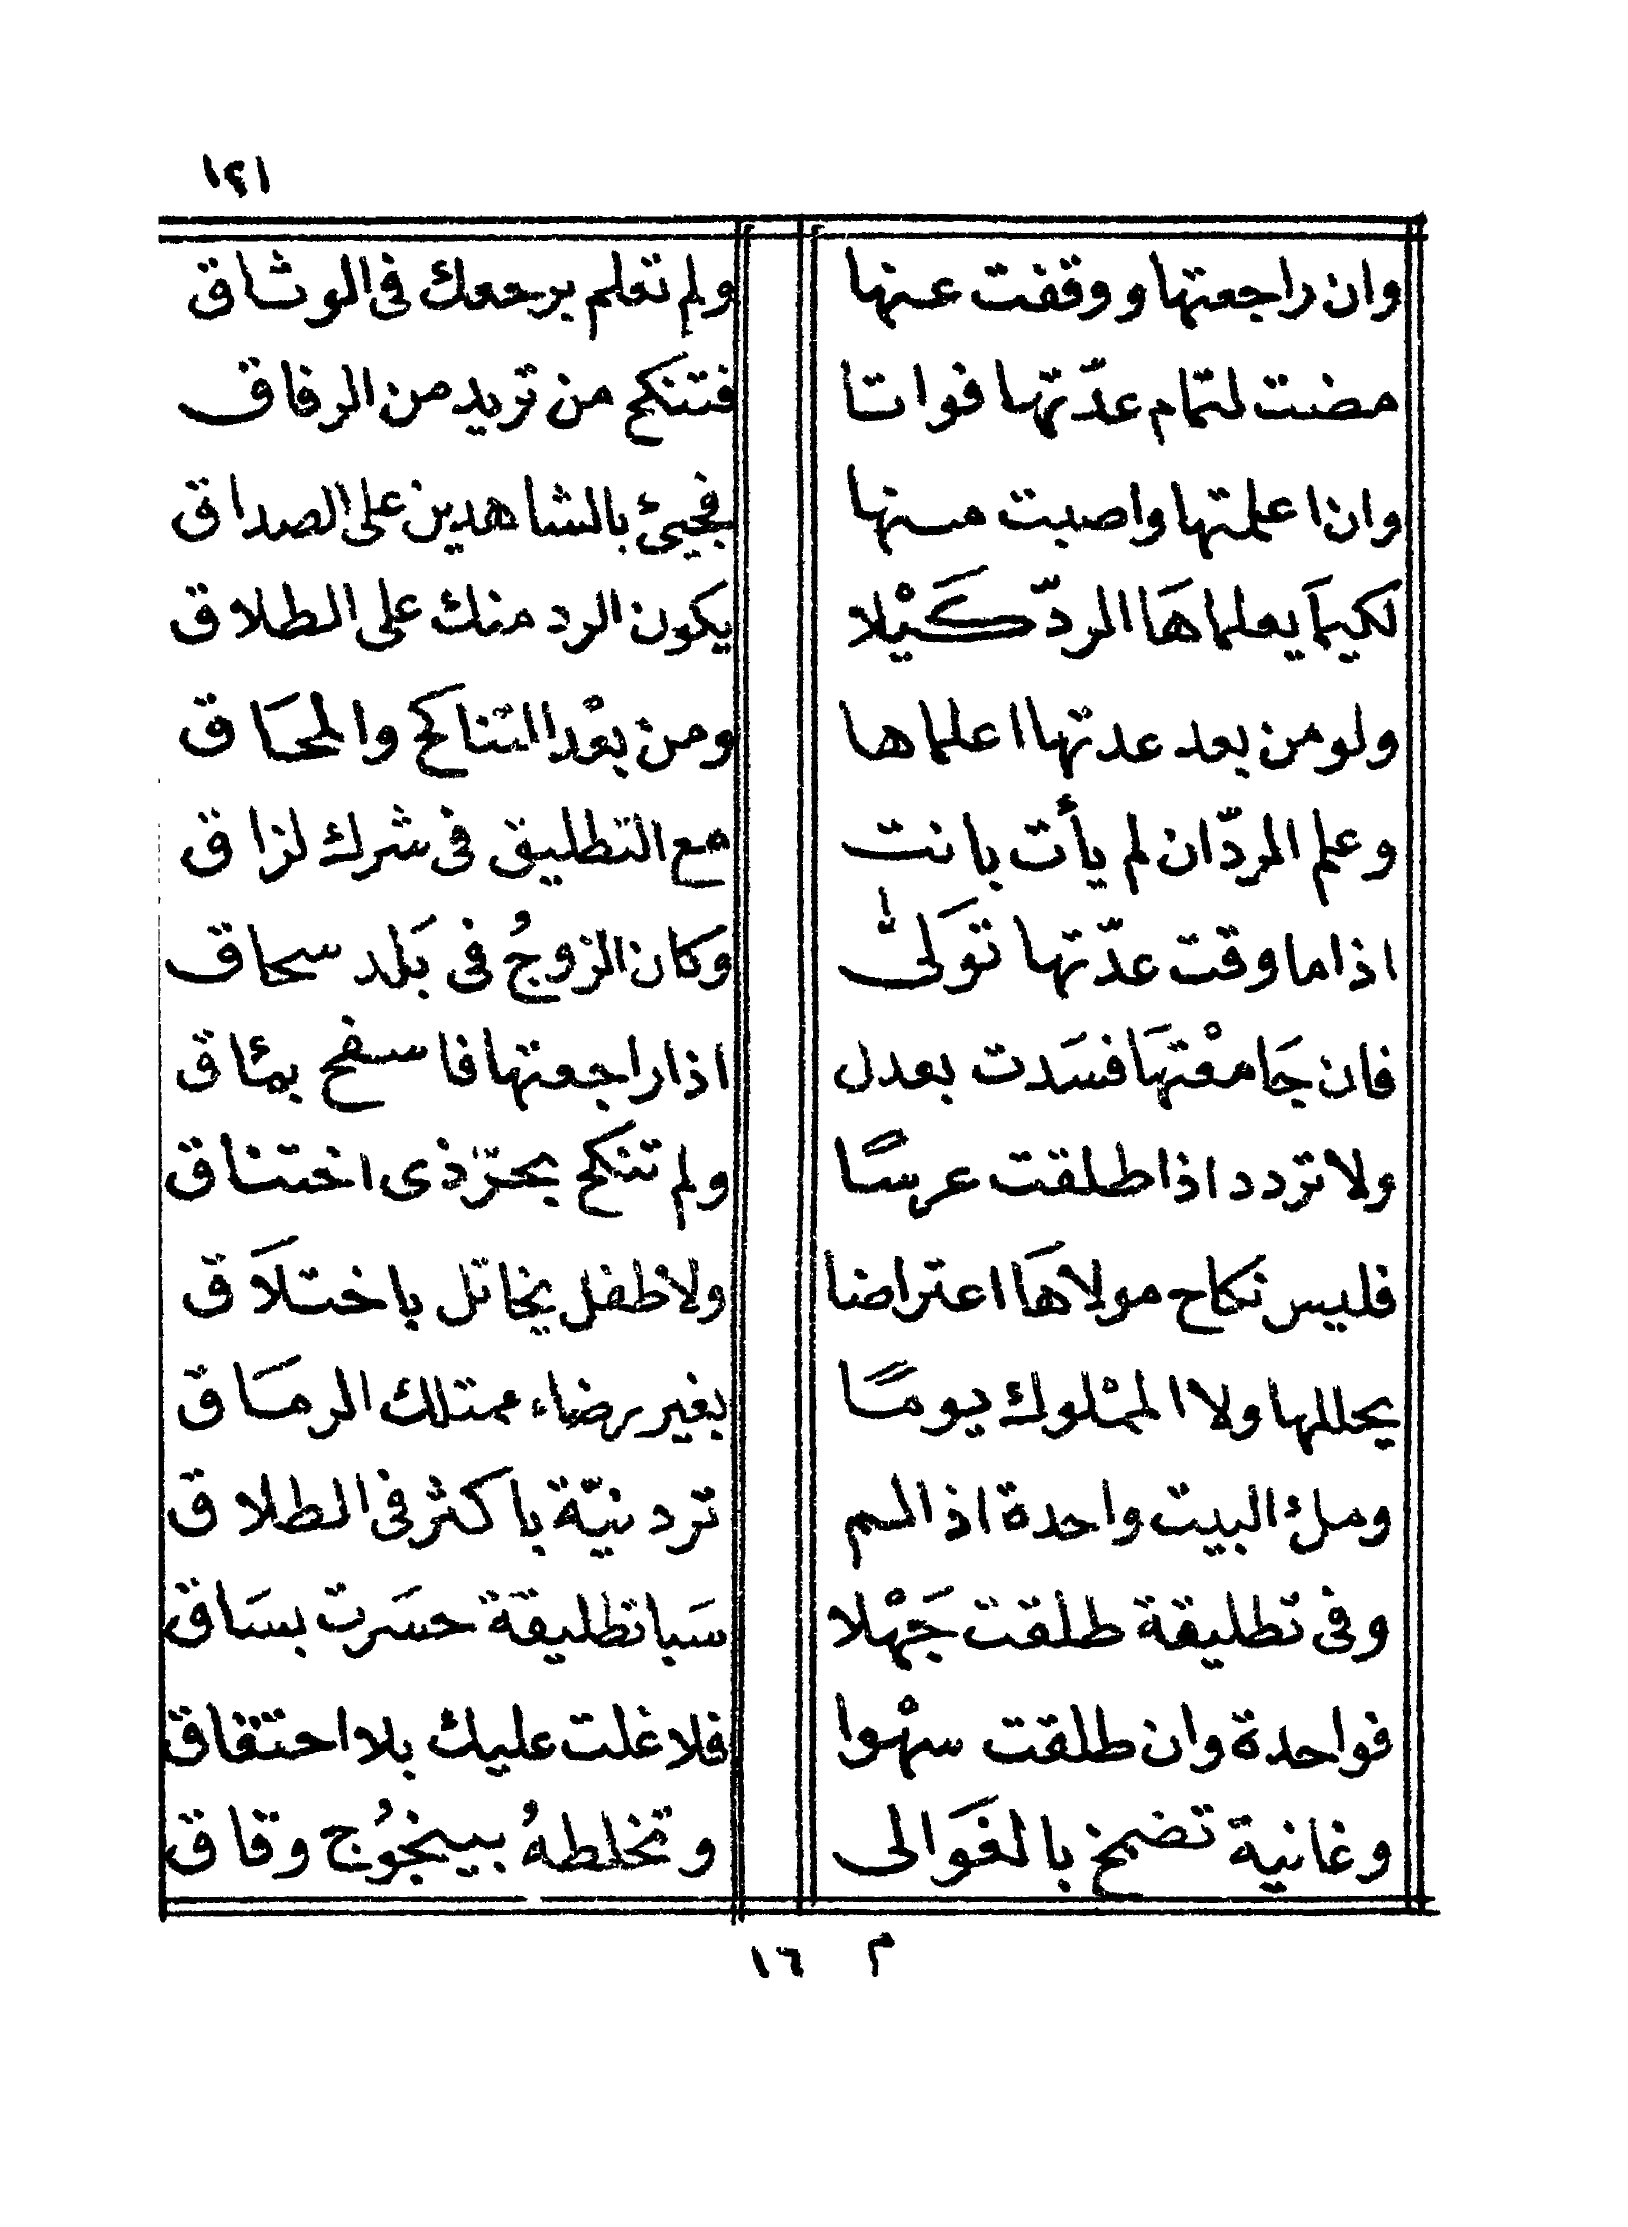 ١٢١
وان راجعتها ووقفت عنها ولم تعلم برجعك فى الوثاق
مضت لتمام عدّتها فواتا فتنكح من تريد من الرفاق
وان اعلمتها واصبت منها فجيئ بالشاهدين على الصداق
لكيمَا يعلماهَا الردّ كَيْلا يكون الرد منك على الطلاق
ولو من بعد عدتها اعلماها ومن بعْد التناكح والمحَاق
وعلم المردّ ان لم يأت بانت مع التطليق فى شرك لزاق
اذا ما وقت عدّتها توَلىّٰ وكان الزوجُ فى بَلد سحاق
فان جَامعْتهَا فسَدت بعدل اذا راجعتها فاسفح بمئاق
ولا تردد اذا طلقت عرسًا ولم تنكح بحرّ ذى اختناق
فليس نكاح مولاهَا اعتراضا ولا طفل يخاتل باختلَاق
يحللها ولا المْلوك يومًا بغير رضاء ممتلك الرمَاق
وملئ البيت واحدة اذا لم ترد نيّة باكثر فى الطلاق
وفى تطليقة طلقت جَهْلا سَبا تطليقة حسَرت بسَاق
فواحدة وان طلقت سهْوا فلا غلت عليك بلا احتفاق
وغانية تضمخ بالغَوالى وتخلطهُ بيبخُوج وقاق
م ١٦